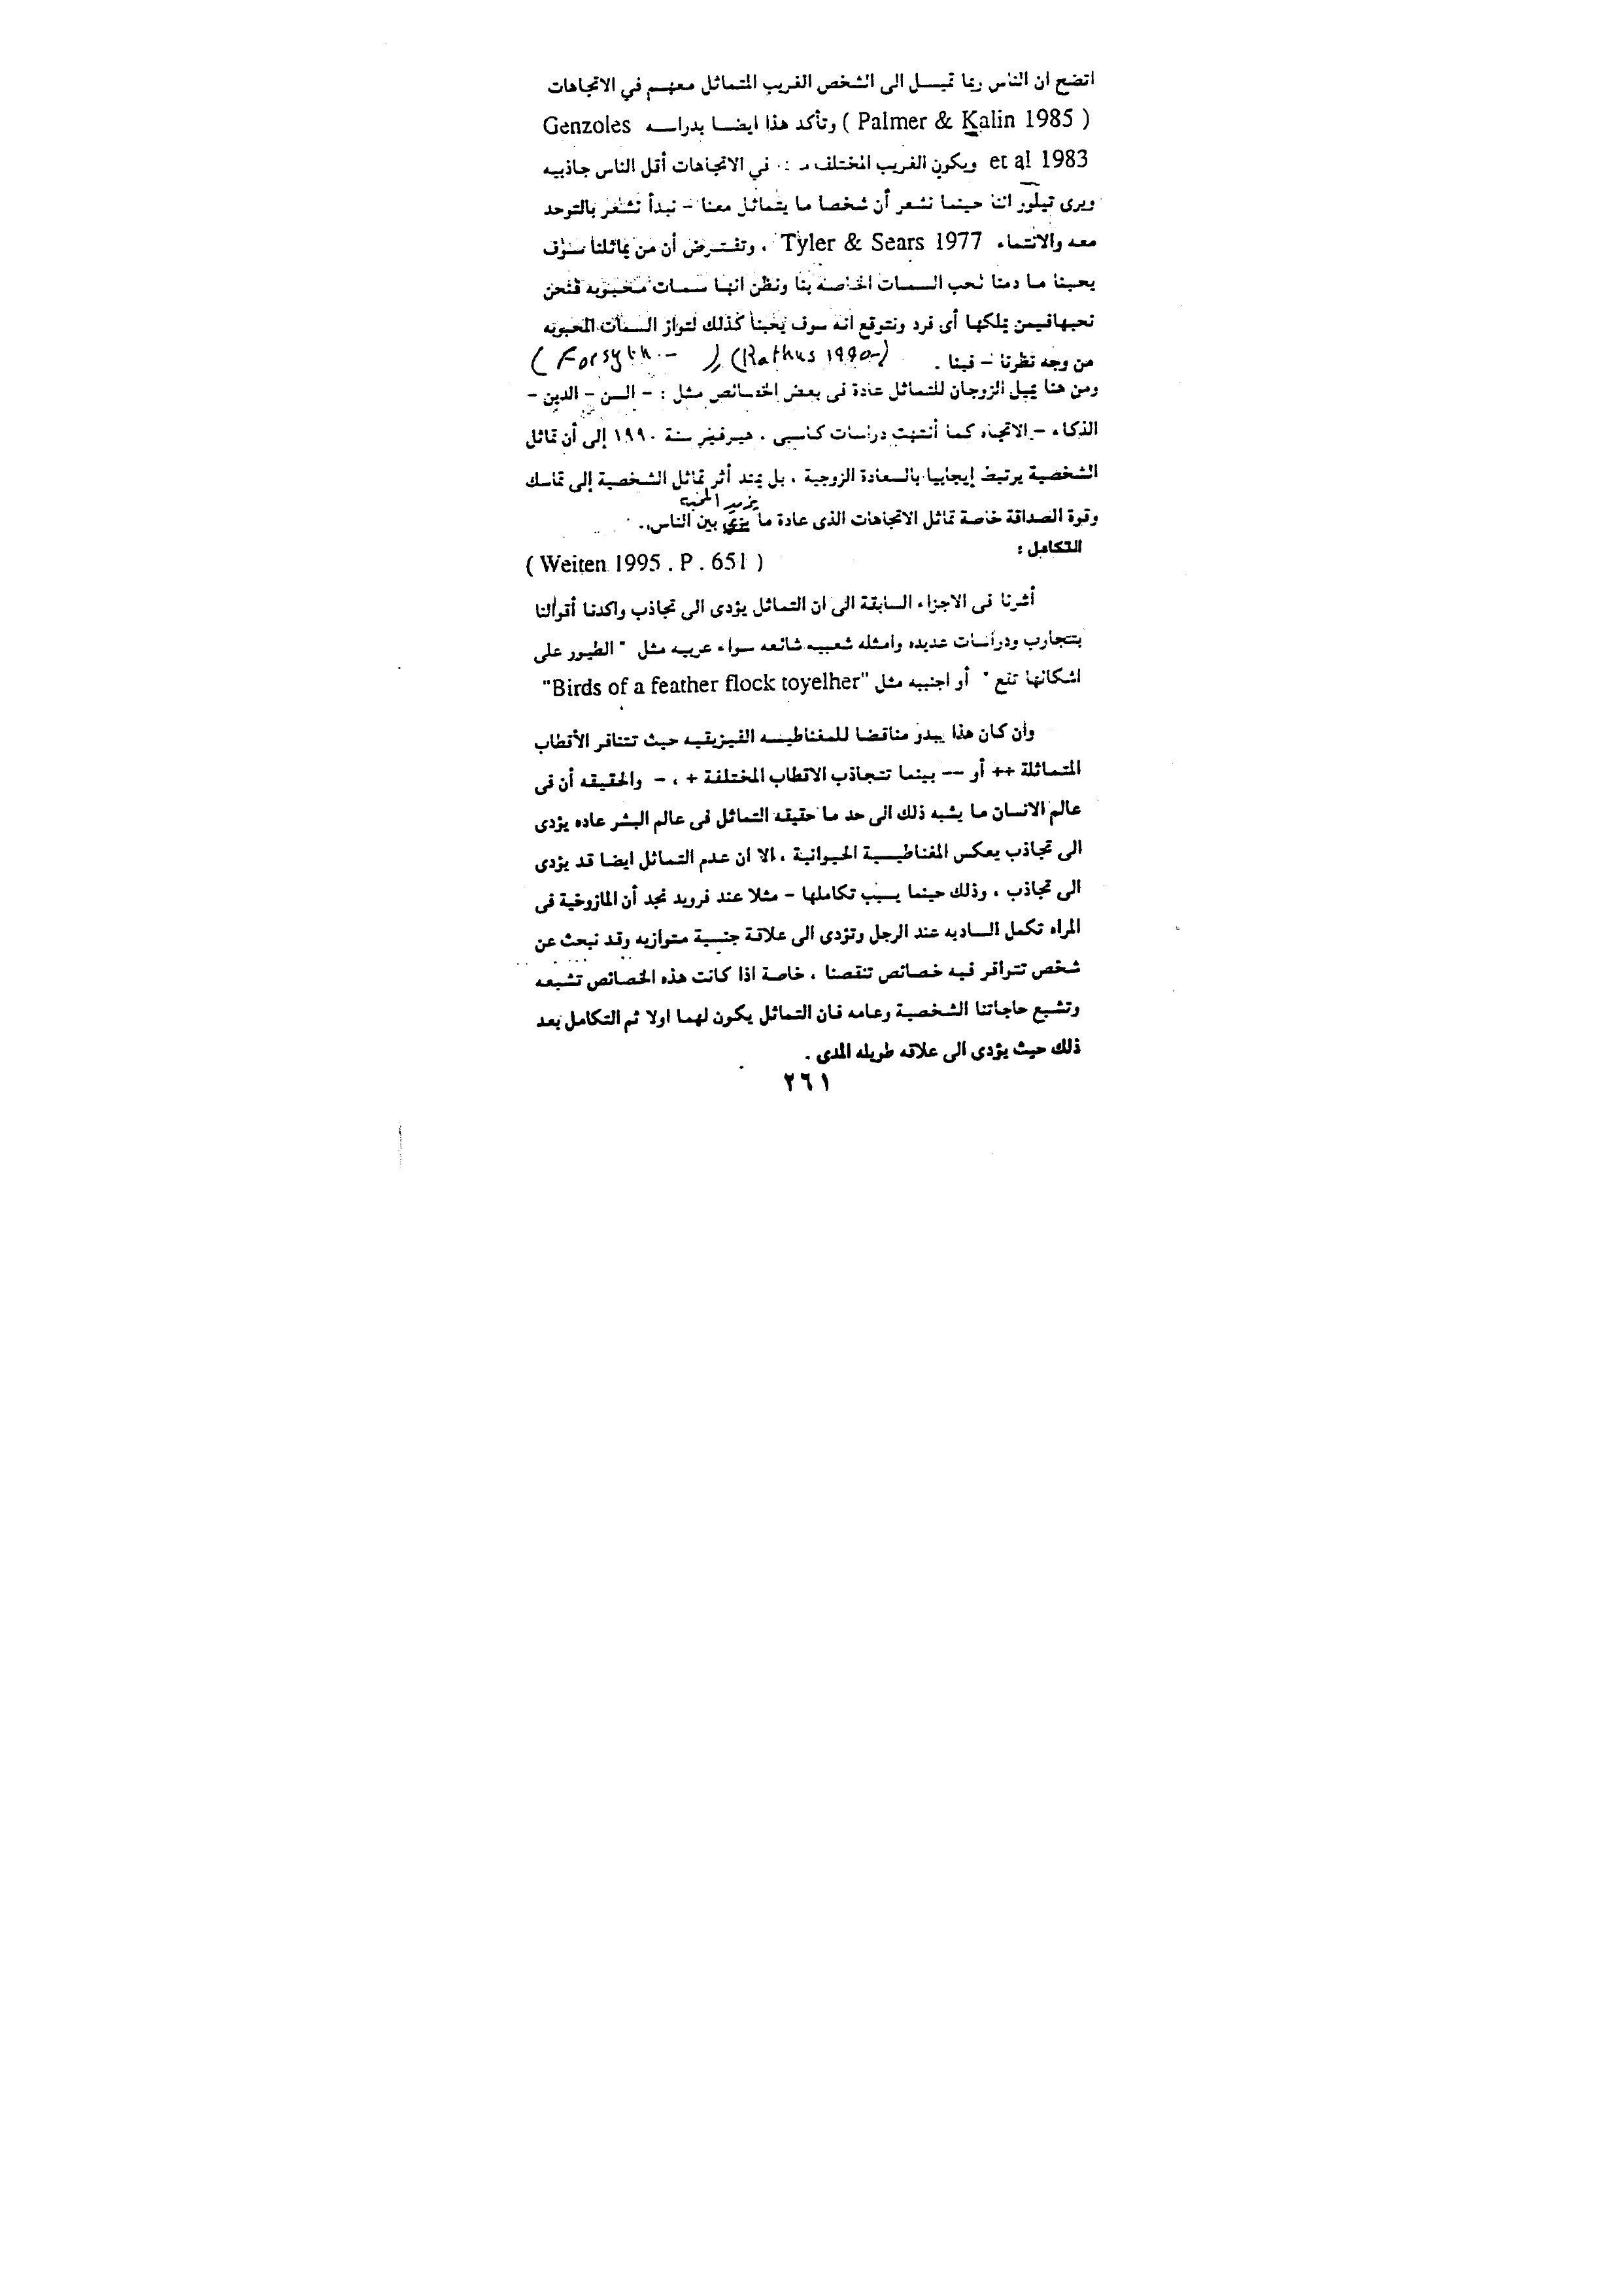 اتضح ان الناس ربما تميل الى الشخص الغريب المتماثل معهم في الاتجاهات
( Palmer & Kalin 1985 ) وتأكد هذا ايضا بدراسه Genzoles
et al 1983 ويكون الغريب المختلف في الاتجاهات أقل الناس جاذبيه
ويرى تيلور اننا حينما نشعر أن شخصا ما يتماثل معنا - نبدأ نشعر بالتوحد
معه والانتماء Tyler & Sears 1977 ، وتفترض أن من يماثلنا سوف
يحبنا ما دمنا نحب السمات الخاصة بنا ونظن انها سمات محبوبه فنحن
نحبهافيمن يملكها أى فرد ونتوقع انه سوف يحبنا كذلك لتواز السمات المحبوبه
من وجه نظرنا - فينا . (Rathus 1990-) ,( Forsyth.- )
ومن هنا يميل الزوجان للتماثل عادة فى بعض الخصائص مثل : - السن - الدين -
الذكاء - الاتجاه كما أنتهت دراسات كاسبى ، هيرفينر سنة ١٩٩٠ إلى أن تماثل
الشخصية يرتبط إيجابيا بالسعادة الزوجية ، بل يمتد أثر تماثل الشخصية إلى تماسك
يزيد المحبه
وقوة الصداقة خاصة تماثل الاتجاهات الذى عادة ما بين الناس .
التكامل :
( Weiten 1995 . P . 651 )
أشرنا فى الاجزاء السابقة الى ان التماثل يؤدى الى تجاذب واكدنا أقوالنا
بتجارب ودراسات عديده وامثله شعبيه شائعه سواء عربيه مثل " الطيور على
اشكالها تقع " أو اجنبيه مثل "Birds of a feather flock toyelher"
وان كان هذا يبدو مناقضا للمغناطيسه الفيزيقيه حيث تتنافر الأقطاب
المتماثلة ++ أو -- بينما تتجاذب الاقطاب المختلفة + ، - والحقيقه أن فى
عالم الانسان ما يشبه ذلك الى حد ما حقيقه التماثل فى عالم البشر عاده يؤدى
الى تجاذب بعكس المغناطيسية الحيوانية ، الا ان عدم التماثل ايضا قد يؤدى
الى تجاذب ، وذلك حينما يسبب تكاملها - مثلا عند فرويد نجد أن المازوخية فى
المراه تكمل الساديه عند الرجل وتؤدى الى علاقة جنسية متوازيه وقد نبحث عن
شخص تتوافر فيه خصائص تنقصنا ، خاصة اذا كانت هذه الخصائص تشبعه
وتشبع حاجاتنا الشخصية وعامه فان التماثل يكون لهما اولا ثم التكامل بعد
ذلك حيث يؤدى الى علاقه طويله المدى .
٢٦١